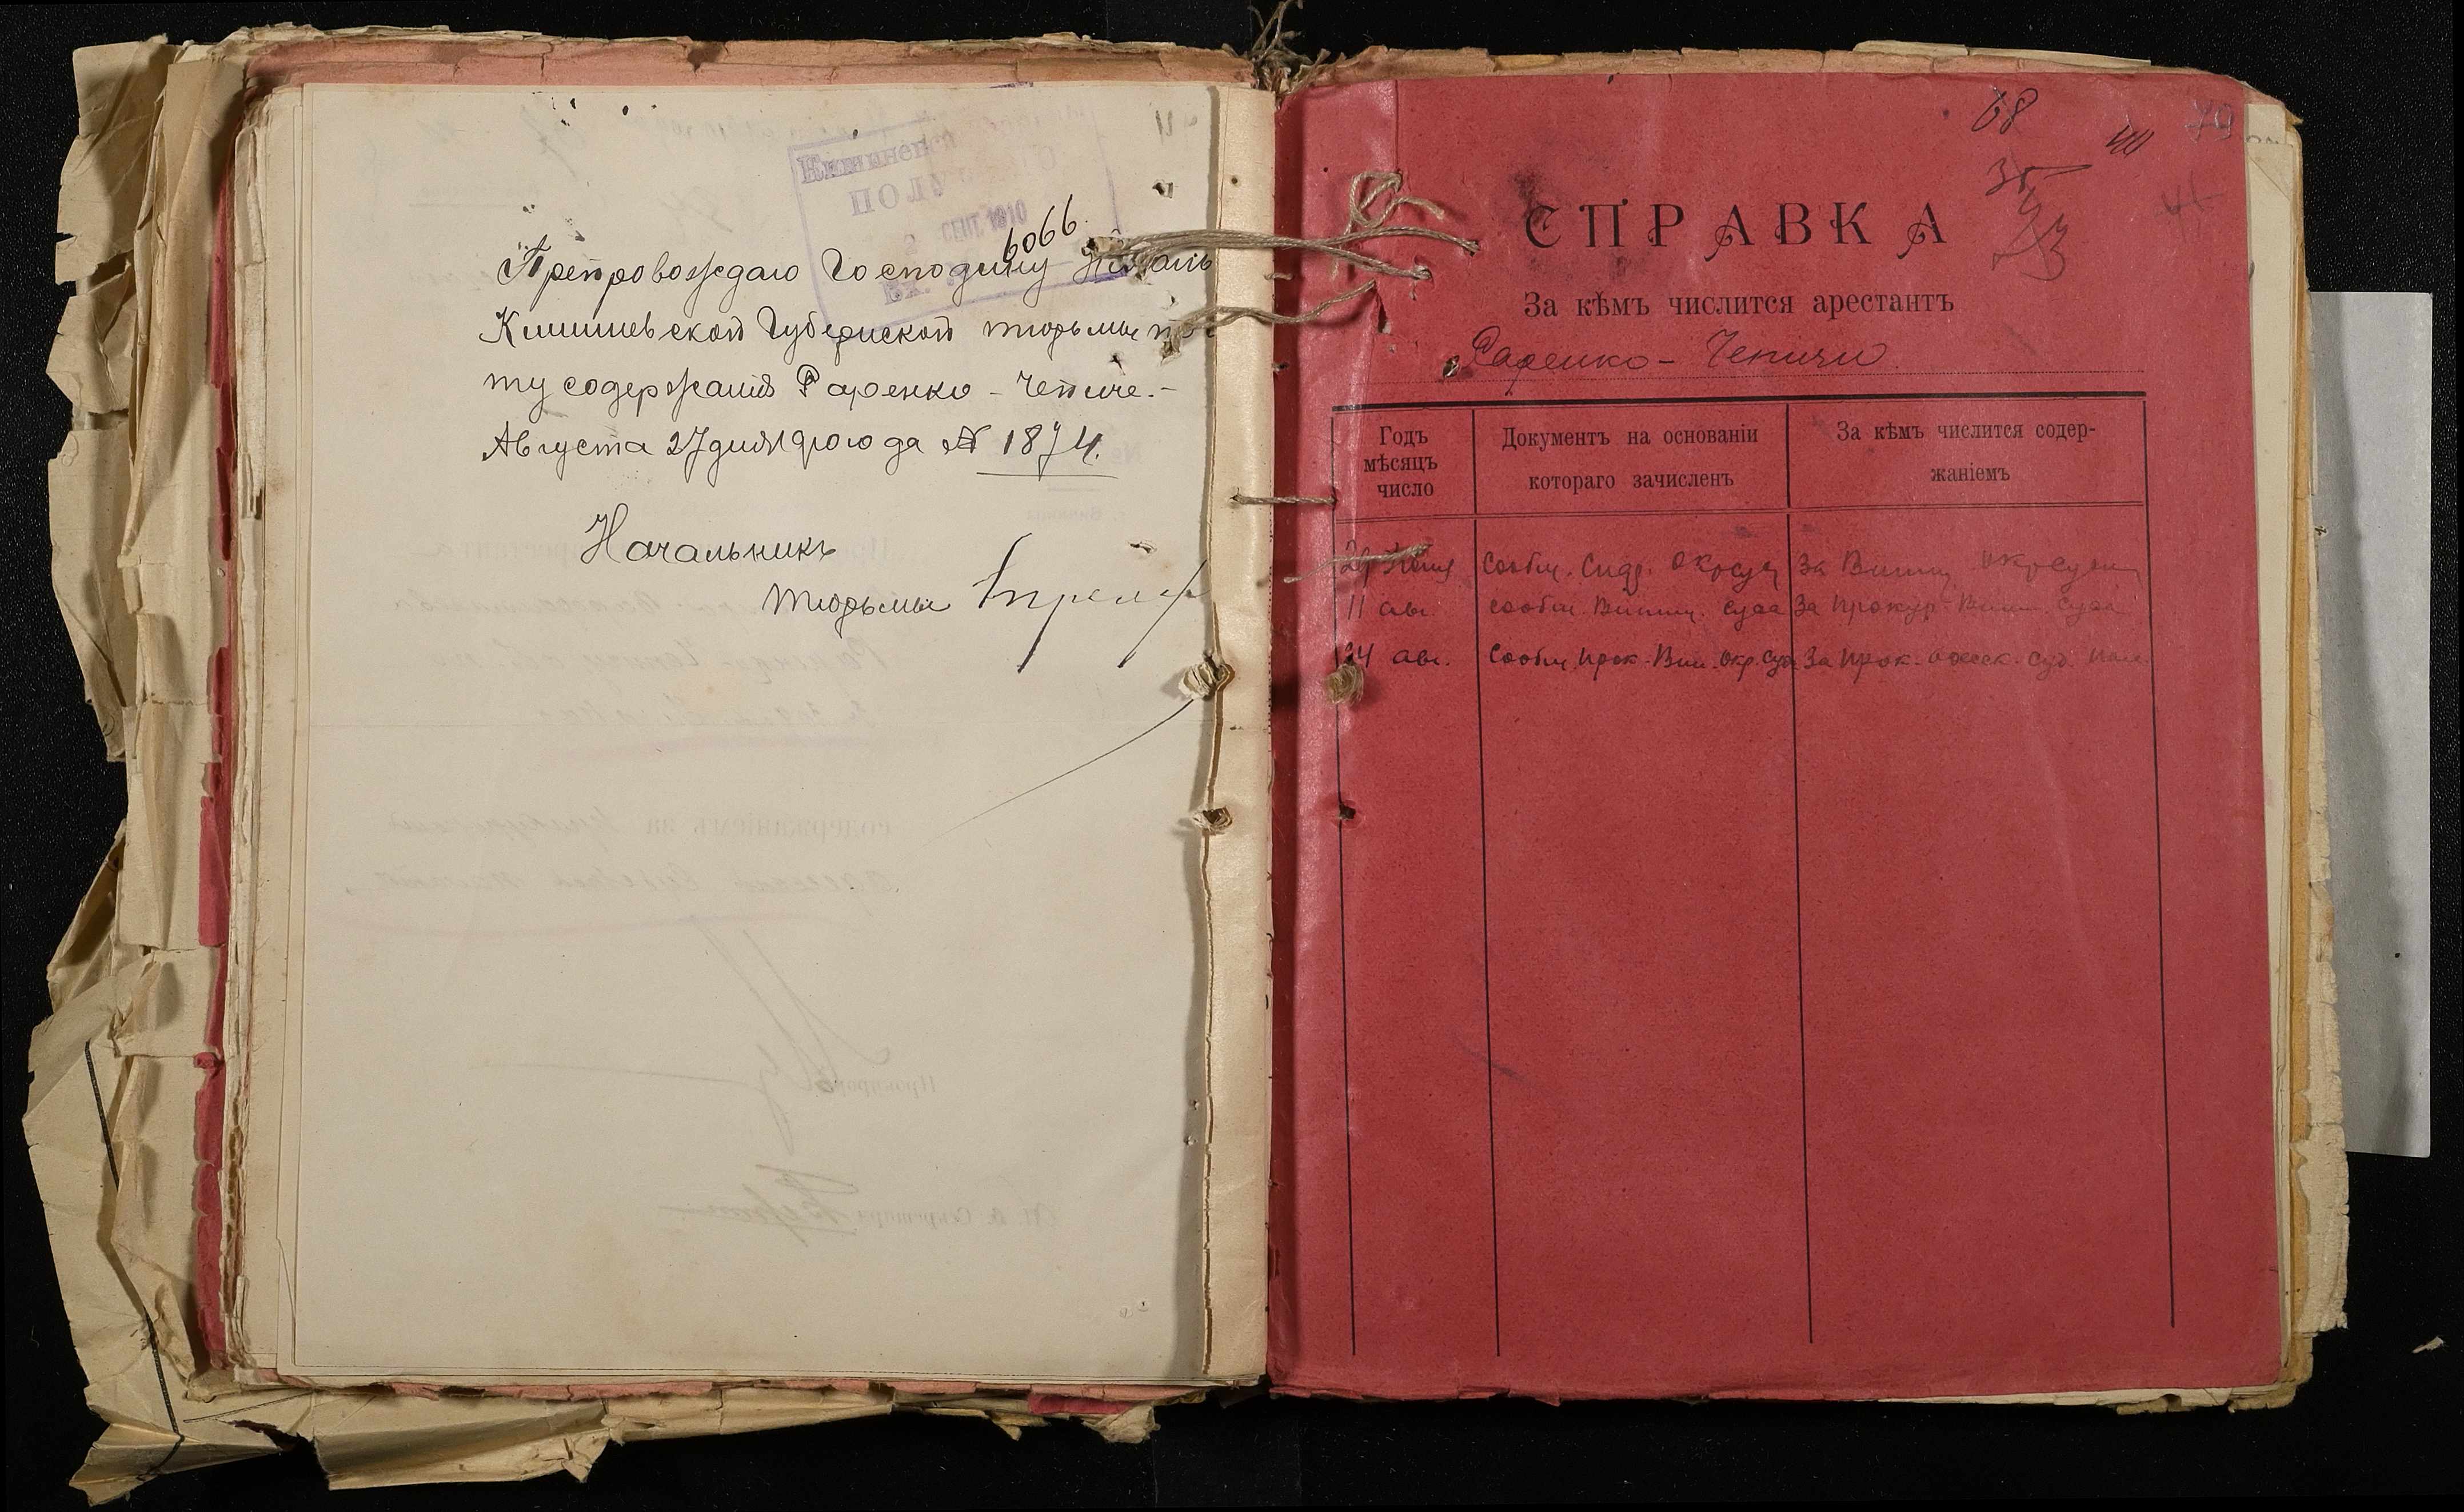 Кишиневск
ПОЛ
СЕНТ. 1910
6066
Препровождаю Господину Началь
Кишиневской Губернской тюрьмы по
ту содержания Раренко - Чепиче. -
Августа 27 дня 1910 года № 1874.
Начальникъ
тюрьмы
68
40
79
35
23
41
СПРАВКА
За кѣмъ числится арестантъ
Раренко - Чепичи
Годъ мѣсяцъ число
Документъ на основаніи котораго зачисленъ
За кѣмъ числится содержаніемъ
Сообщ. Окр суда За Винн Окр судом
11 авг. сообщ. Винниц. суда За Прокур. Винн. Суда
24 авг. Сообщ. Прок. Вин. Окр. Суда За Прок. Одесск. Суд. Пал.
содержаніемъ за
Прокуроръ
И. д. Секретаря